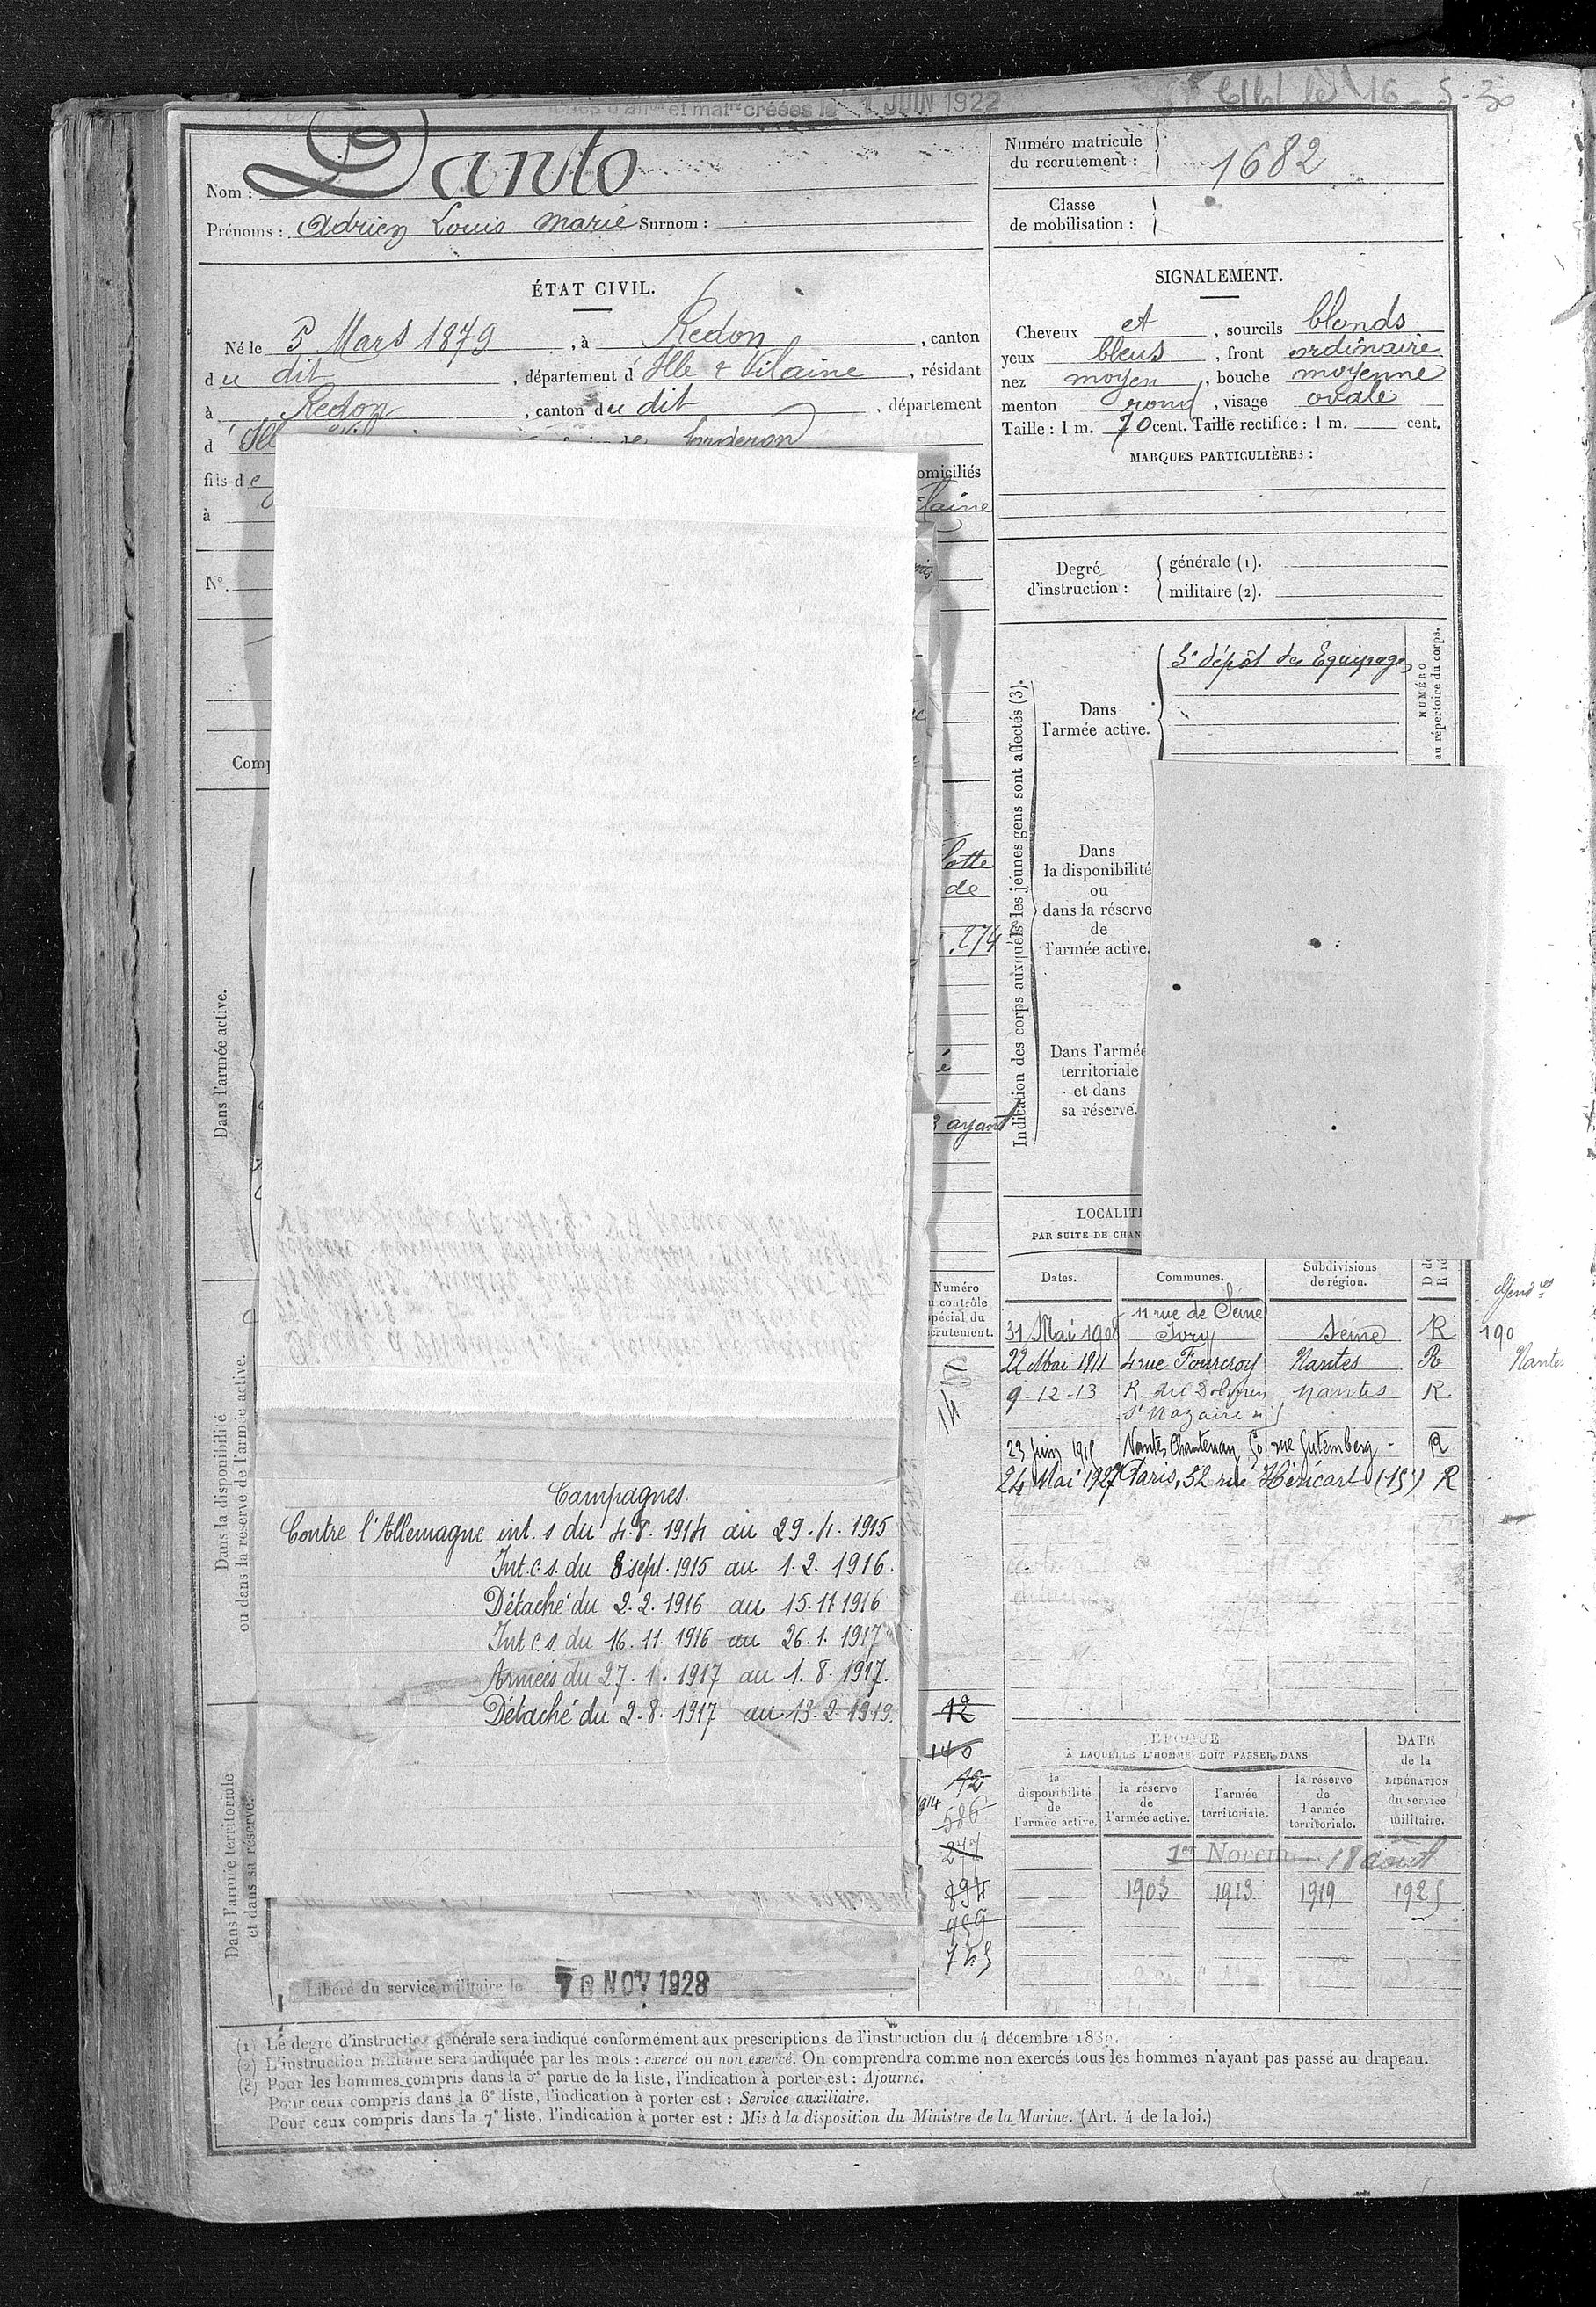 et matre créées le 1 JUIN 1922
Nom : Danto
Prénoms : Adrien Louis Marie Surnom :
Numéro matricule
du recrutement :
1682
Classe
de mobilisation :
ÉTAT CIVIL.
Né le 5 Mars 1879, à Redon, canton
du dit, département d'Ille & Vilaine, résidant
à Redon, canton du dit, département
d'
fils de
omiciliés
à
laine
N°.
SIGNALEMENT.
Cheveux et, sourcils blonds
yeux bleus, front ordinaire
nez moyen, bouche moyenne
menton rond, visage ovale
Taille : 1 m. 70 cent. Taille rectifiée : 1 m. cent.
MARQUES PARTICULIÈRES :
Degré
d'instruction :
générale (1).
militaire (2).
Indication des corps auxquels les jeunes gens sont affectés (3).
Dans
l'armée active.
5e dépôt des Equipages
NUMÉRO
au répertoire du corps.
Dans
la disponibilité
ou
dans la réserve
de
l'armée active.
Dans l'armée
territoriale
et dans
sa réserve.
Comp
lotte
de
274
é
ayant
Dans l'armée active.
Dans la disponibilité
ou dans la réserve de l'armée active.
Dans l'armée territoriale
et dans sa réserve.
LOCALITÉ
PAR SUITE DE CHAN
Dates.
Communes.
Subdivisions
de région.
Numéro
u contrôle
spécial du
ecrutement.
31 Mai 1908 11 rue de Seine Ivry Seine R
190
22 Mai 1911 4 rue Fourcroy Nantes R
Nantes
9-12-13 R. du Dolmen St Nazaire Nantes R.
23 Juin 1915 Nantes Chantenay rue Gutemberg - R
24 Mai 1927 Paris, 52 rue Héricart (15e) R
Campagnes.
Contre l'Allemagne int. s du 4.8.1914 au 29.4.1915
Int.c.s. du 8 sept. 1915 au 1.2.1916.
Détaché du 2.2.1916 au 15.11.1916
Int.c.s. du 16.11.1916 au 26.1.1917
Armées du 27.1.1917 au 1.8.1917.
Détaché du 2.8.1917 au 13.2.1919.
12
140
12
914
586
277
894
959
745
ÉPOQUE
À LAQUELLE L'HOMME DOIT PASSER DANS
DATE
de la
LIBÉRATION
du service
militaire.
la
disponibilité
de
l'armée active.
la réserve
de
l'armée active.
l'armée
territoriale.
la réserve
de
l'armée
territoriale.
1er Novem 18 août
1903 1913 1919 1925
Libéré du service militaire le NOV 1928
(1) Le degré d'instruction générale sera indiqué conformément aux prescriptions de l'instruction du 4 décembre
(2) L'instruction militaire sera indiquée par les mots : exercé ou non exercé. On comprendra comme non exercés tous les hommes n'ayant pas passé au drapeau.
(3) Pour les hommes compris dans la 5e partie de la liste, l'indication à porter est : Ajourné.
Pour ceux compris dans la 6e liste, l'indication à porter est : Service auxiliaire.
Pour ceux compris dans la 7e liste, l'indication à porter est : Mis à la disposition du Ministre de la Marine. (Art. 4 de la loi.)